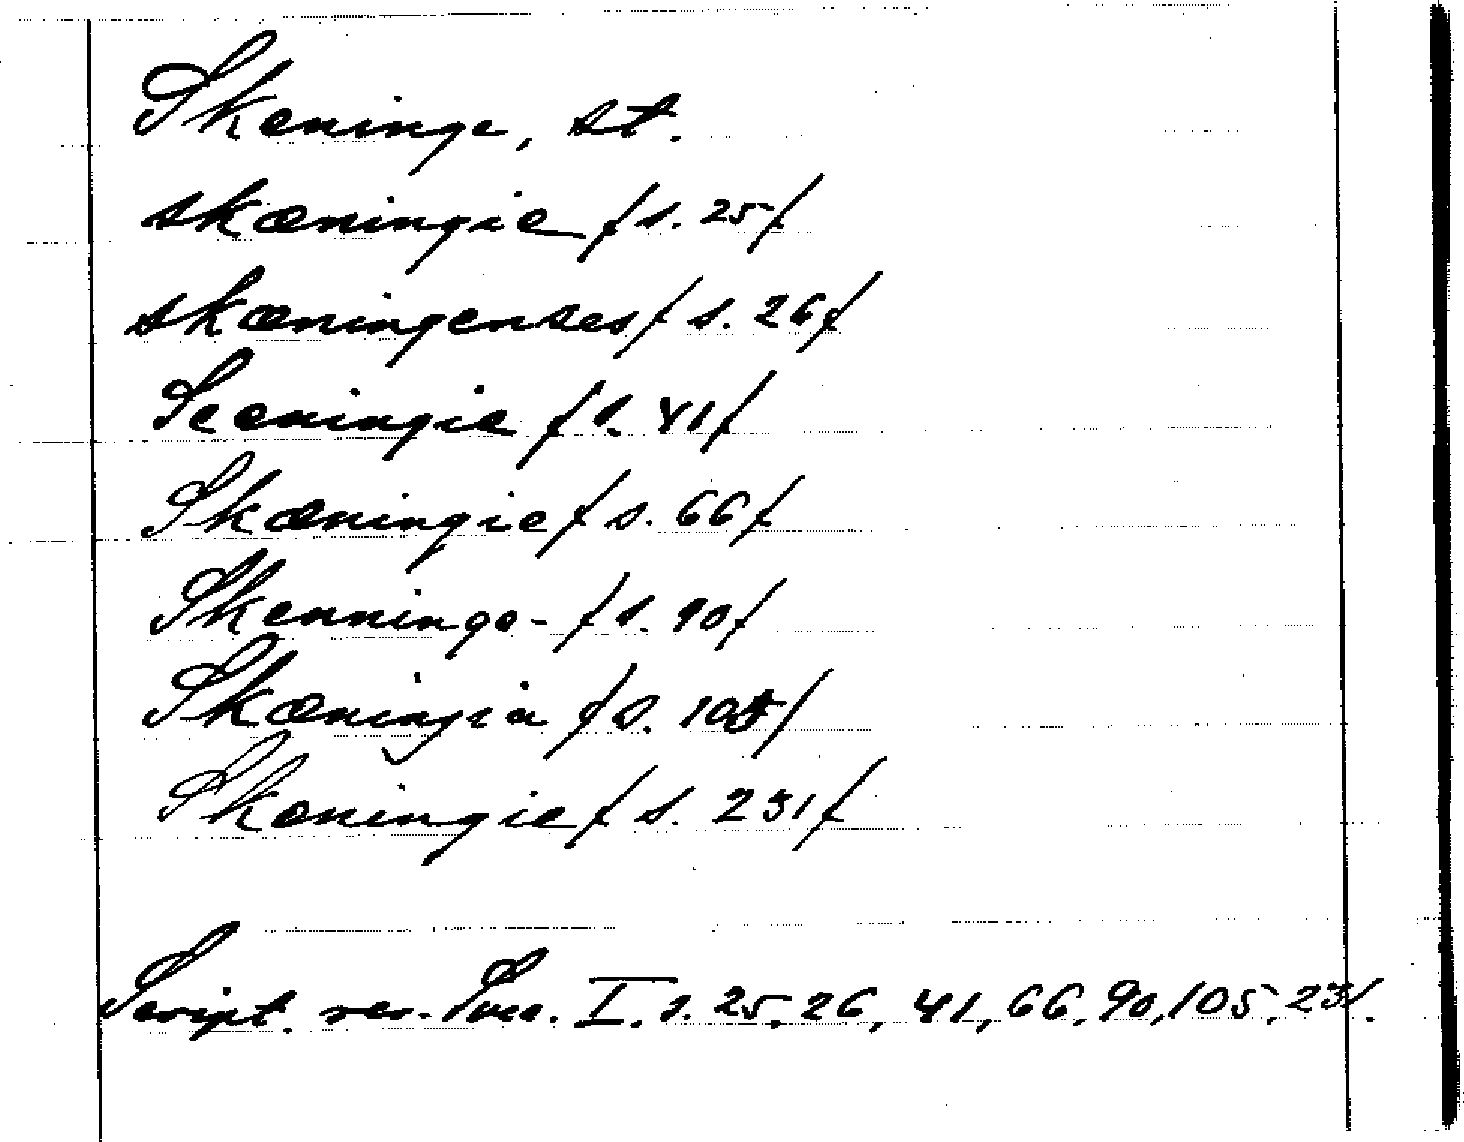 Skeninge, st.
skæningie /s. 25/
skæningenses / s. 26/
Sceningie /s. 41/
Skæningie / s. 66/
Skenninge- /s. 90/
Skæningia /s. 105/
Skeningie / s. 231/
Script. rer. Svec. I. s. 25, 26, 41, 66, 90, 105, 231.